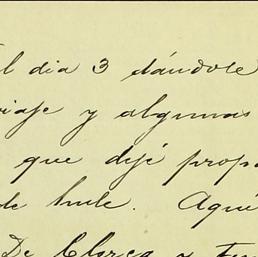 el dia 3 dándole
viaje y algunas
que dejé propa
de hule. Aquí
De Chorca y Fu